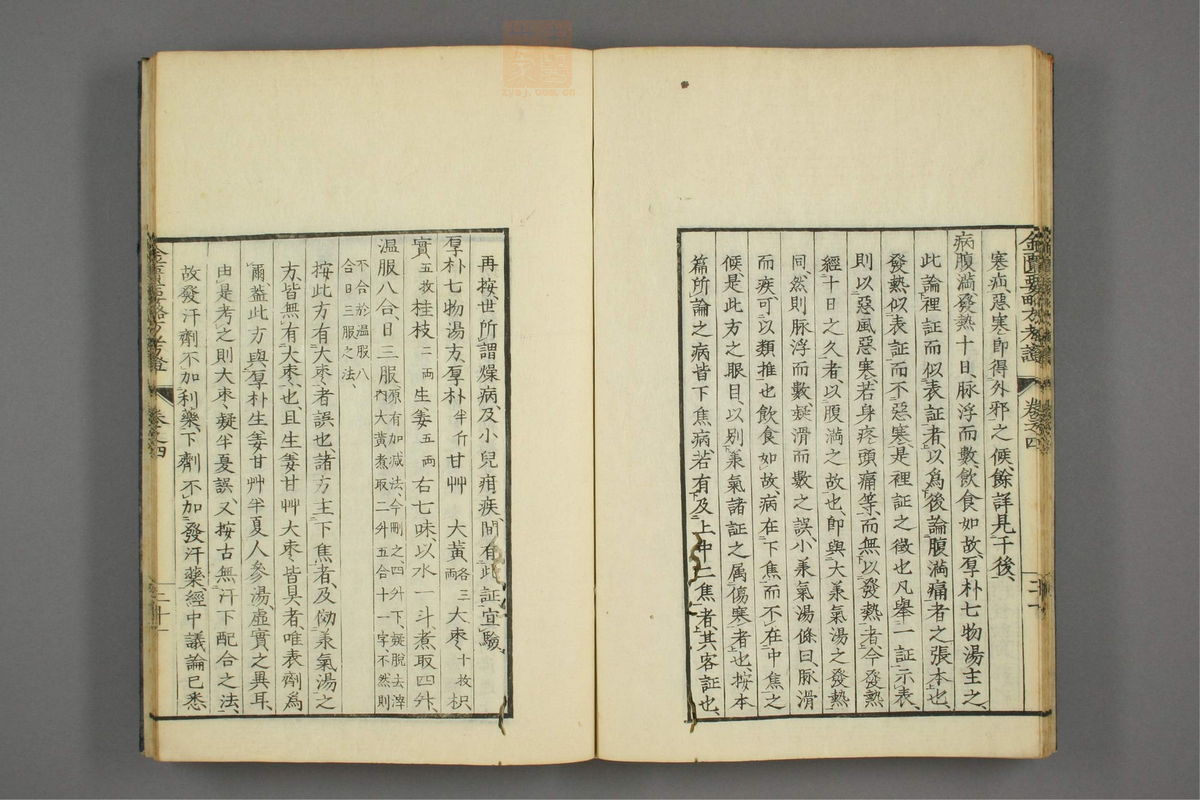 金匱要略方考證 卷之四
寒疝惡寒即得外邪之候餘詳見于後
病腹滿發熱十日脉浮而數飲食如故厚朴七物湯主之
此論裡証而似表証者以爲後論腹滿痛者之張本也
發熱似表証而不惡寒是裡証之徵也凡舉一証示表
則以惡風惡寒若身疼頭痛等而無以發熱者今發熱
經十日之久者以腹滿之故也即與大兼氣湯之發熱
同然則脉浮而數疑滑而數之誤小兼氣湯條曰脉滑
而疾可以類推也飲食如故病在下焦而不在中焦之
候是此方之眼目以別兼氣諸証之属傷寒者也按本
篇所論之病皆下焦病若有及上中二焦者其客証也
再按世所謂燥病及小兒疳疾間有此証宜驗
厚朴七物湯方厚朴半斤甘艸 大黃各三兩大棗十枚枳
實五枚桂枝二兩生姜五兩右七味以水一斗煮取四升
温服八合日三服原有加减法今刪之四升下疑脫去滓内大黃煮取二升五合十一字不然則
不合於温服八合日三服之法
按此方有大棗者誤也諸方主下焦者及兼氣湯之
方皆無有大棗也且生姜甘艸大棗皆具者唯表劑爲
爾蓋此方與厚朴生姜甘艸半夏人參湯虛實之異耳
由是考之則大棗疑半夏誤又按古無汗下配合之法
故發汗劑不加利藥下劑不加發汗藥經中議論已悉
金匱要略方考證 卷之四
zysj.com.cn